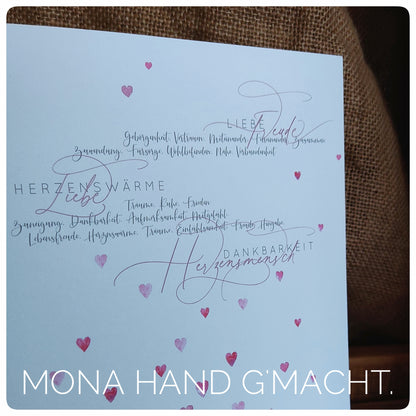 LIEBE
Freude
Geborgenheit. Vertrauen. Miteinander. Füreinander. Zusammen.
Zuwendung. Fürsorge. Wohlbefinden. Nähe. Verbundenheit
HERZENSWÄRME
Liebe
Träume. Ruhe. Frieden
Zuneigung. Dankbarkeit. Aufmerksamkeit. Mitgefühl.
Lebensfreude. Herzenswärme. Träume. Einfühlsamkeit. Freude. Hingabe.
DANKBARKEIT
Herzensmensch
MONA HAND G'MACHT.